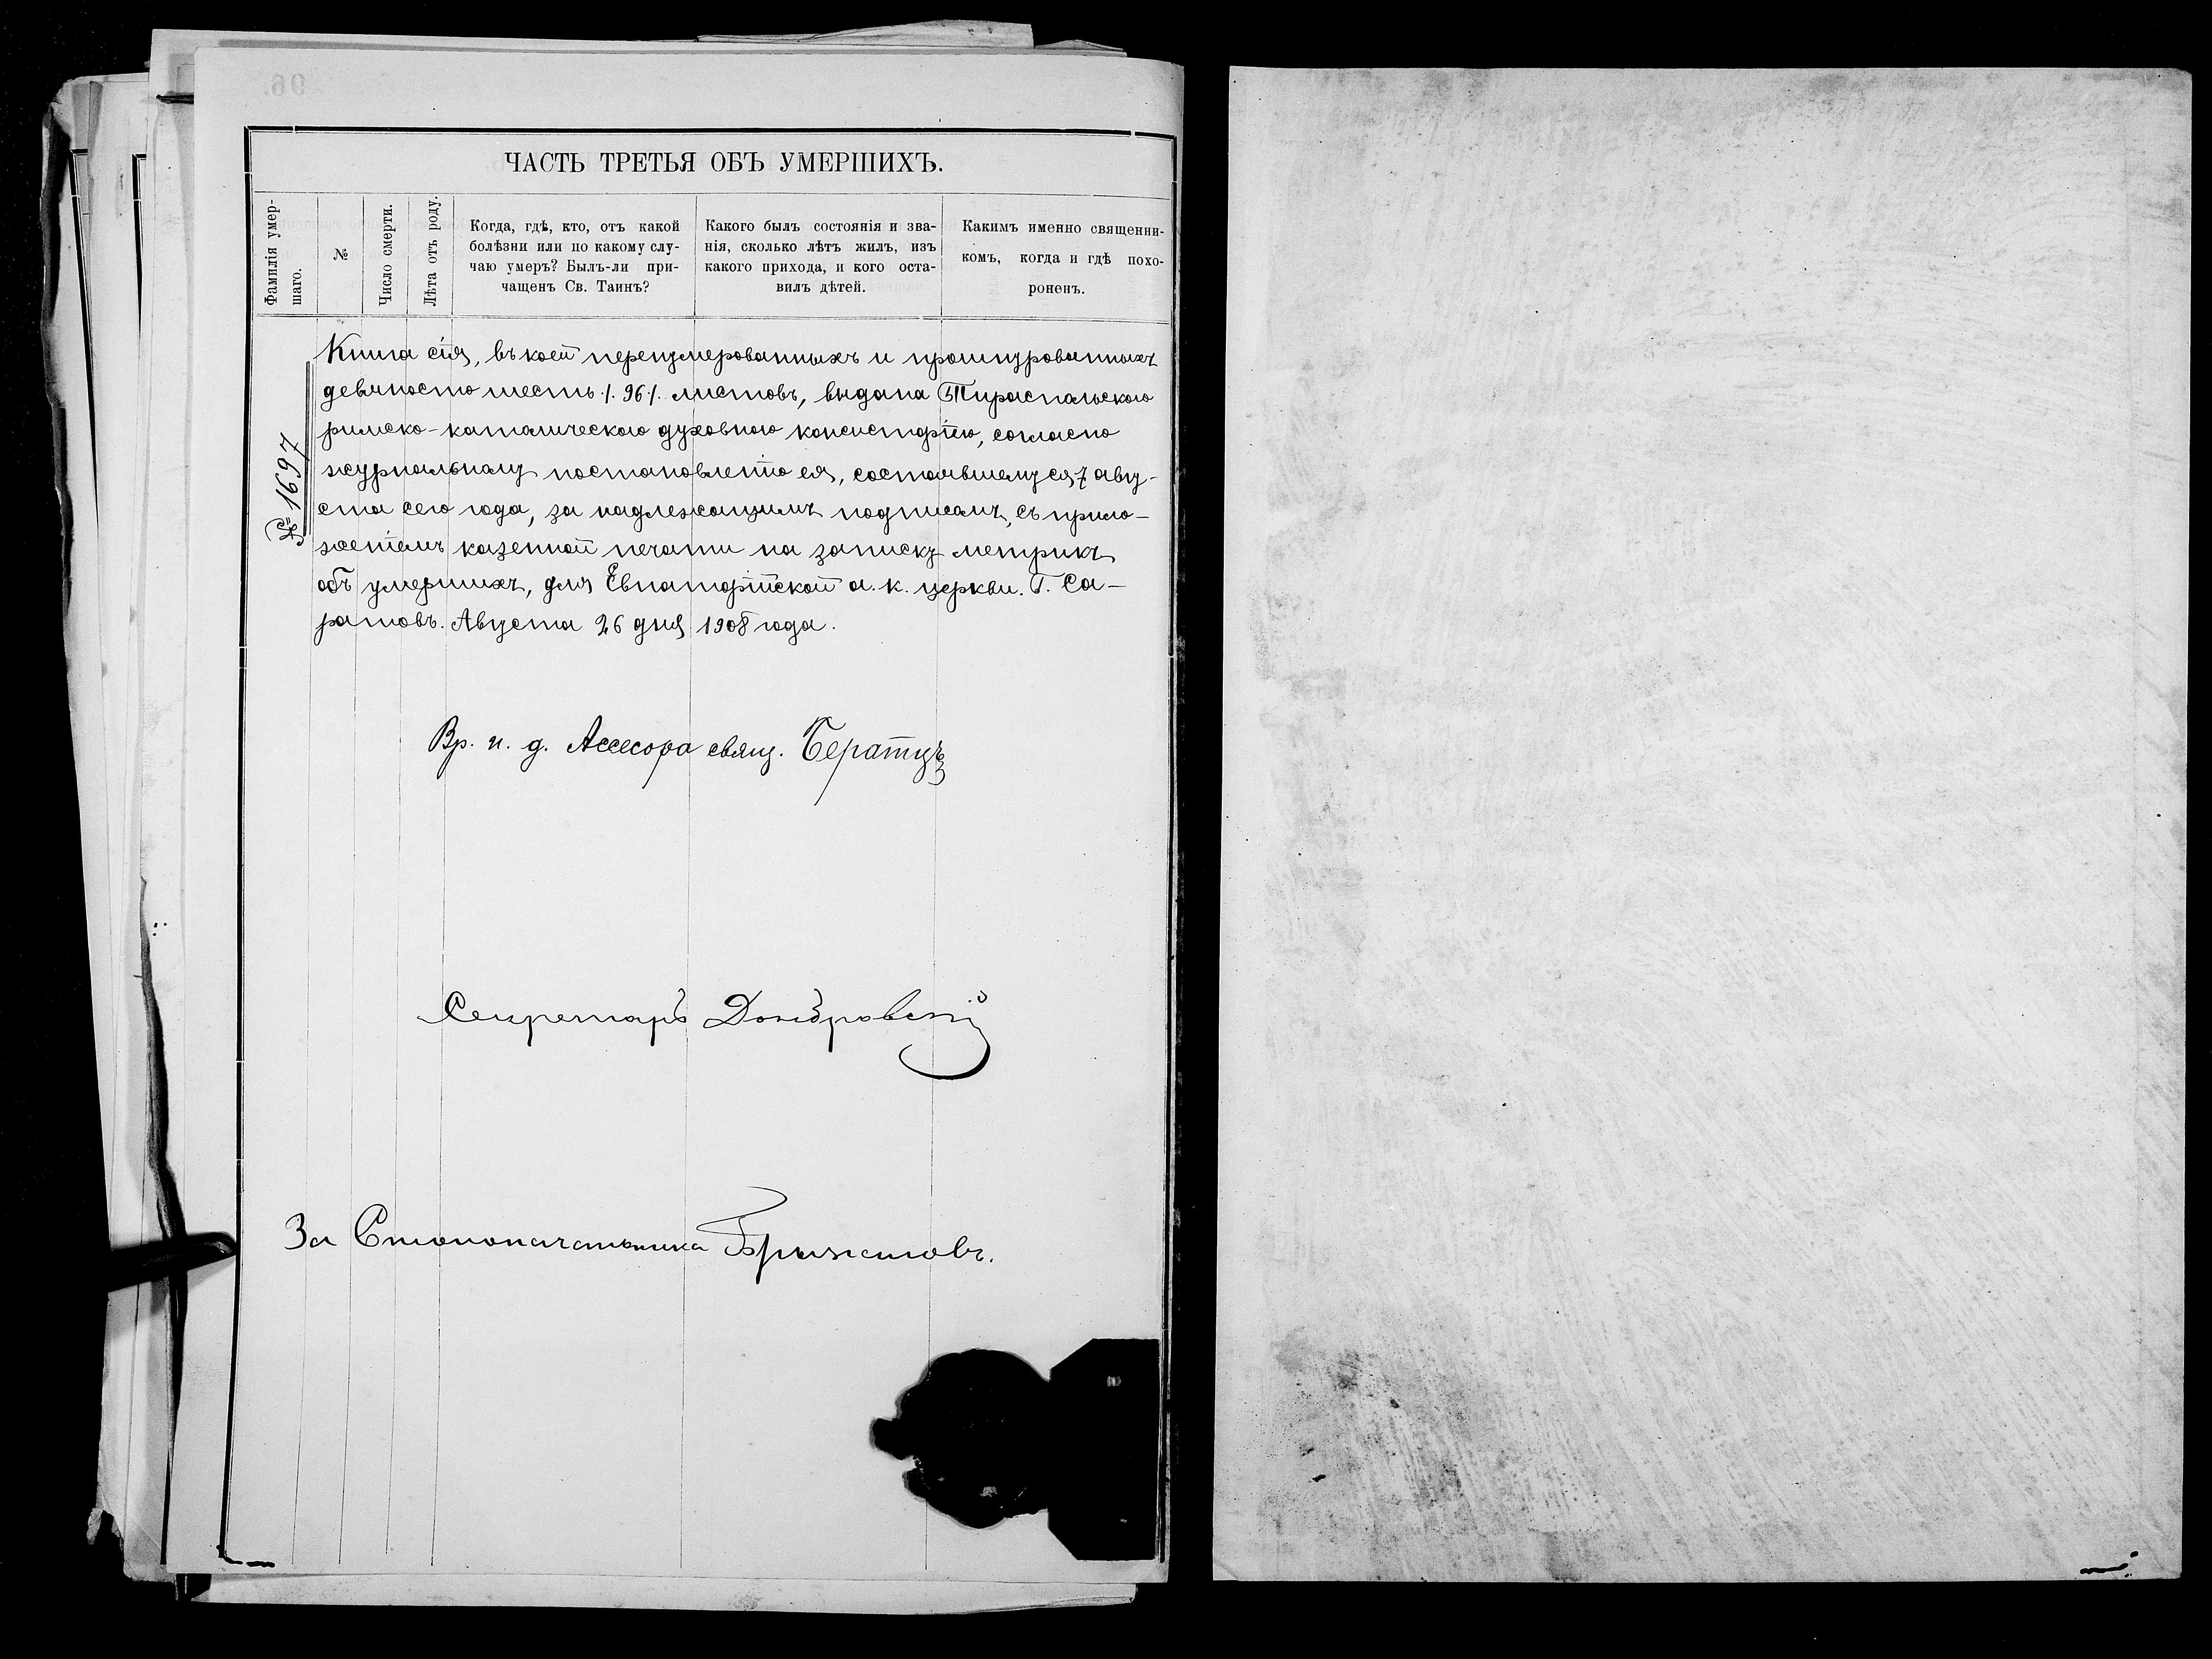 96.
ЧАСТЬ ТРЕТЬЯ ОБЪ УМЕРШИХЪ.
Фамилія умер-
шаго.
№
Число смерти.
Лѣта отъ роду.
Когда, гдѣ, кто, отъ какой
болѣзни или по какому слу-
чаю умеръ? Былъ-ли при-
чащенъ Св. Таинъ?
Какого былъ состоянія и зва-
нія, сколько лѣтъ жилъ, изъ
какого прихода, и кого оста-
вилъ дѣтей.
Какимъ именно священни-
комъ, когда и гдѣ похо-
роненъ.
№ 1697
Книга сія, въ коей перенумерованныхъ и прошнурованныхъ
девяносто шесть ./. 96 ./. листовъ, выдана Тираспольскою
римско-католическою духовною консисторіею, согласно
журнальному постановленію ея, состоявшемуся 7 авгу-
ста сего года, за надлежащимъ подписомъ, съ прило-
женіемъ казенной печати на записку метрикъ
объ умершихъ, для Евпаторійской а. к. церкви. Г. Са-
ратовъ. Августа 26 дня 1908 года.
Вр. и. д. Ассесора свящ. Бератцъ
Секретарь Домбровскій
За Столоначальника